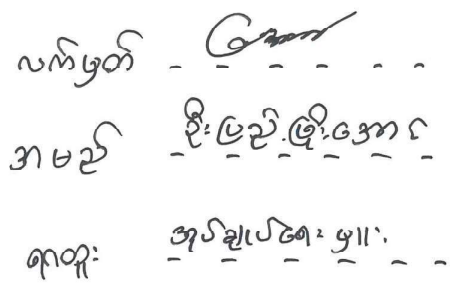 လက်မှတ် - - - - - -
အမည် ဦးပြည့်ဖြိုးအောင်
ရာထူး အုပ်ချုပ်ရေးမှူး